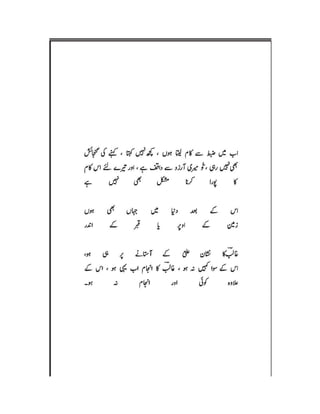 اب میں ضبط سے کام لیتا ہوں ، کچھ نہیں کہتا ، کہنے کی گنجائش
بھی نہیں رہی ، تُو میری آرزو سے واقف ہے ، اور تیرے لئے اس کام
کا پورا کرنا مشکل بھی نہیں ہے
اس کے بعد دنیا میں جہاں بھی ہوں
زمین کے اوپر یا قبر کے اندر
غالبؔ کا نشان علیؑ کے آستانے پر ہی ہو،
اس کے سوا کہیں نہ ہو ، غالبؔ کا انجام اب یہی ہو ، اس کے
علاوہ کوئی اور انجام نہ ہو۔